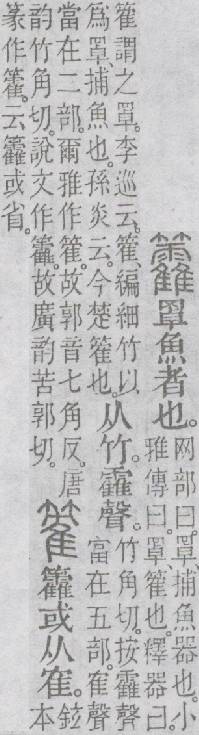 籱罩魚者也。
网部曰。罩、捕魚器也。小
雅傳曰。罩、籗也。釋器曰。
籗謂之罩。李巡云。籗、編細竹以
爲罩、捕魚也。孫炎云。今楚籗也。
从竹。靃聲。
竹角切。按靃聲
當在五部。隺聲
當在二部。爾雅作籗。故郭音七角反。唐
韵竹角切。說文作籱。故廣韵苦郭切。
籗籱或从隺。
鉉
本
篆作籗。云籱或省。